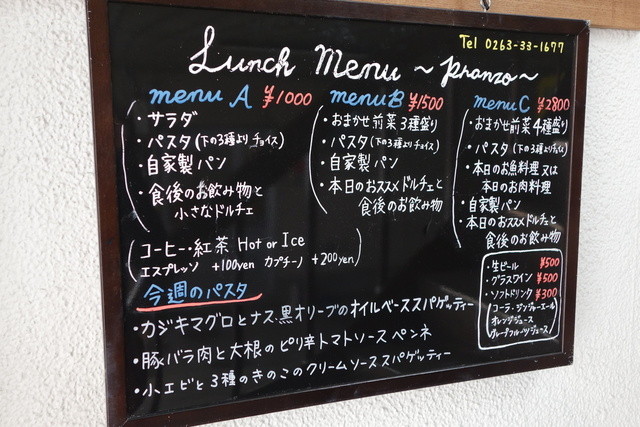 Tel 0263-33-1677
Lunch Menu ~ Pranzo ~
menu A ¥1000
・サラダ
・パスタ(下の3種よりチョイス)
・自家製パン
・食後のお飲み物と
小さなドルチェ
menu B ¥1500
・おまかせ前菜3種盛り
・パスタ(下の3種よりチョイス)
・自家製パン
・本日のおススメドルチェと
食後のお飲み物
menu C ¥2800
・おまかせ前菜4種盛り
・パスタ(下の3種よりチョイス)
・本日のお魚料理又は
本日のお肉料理
・自家製パン
・本日のおススメドルチェと
食後のお飲み物
(コーヒー・紅茶 Hot or Ice
エスプレッソ +100yen カプチーノ +200yen)
・生ビール ¥500
・グラスワイン ¥500
・ソフトドリンク ¥300
(コーラ・ジンジャーエール
オレンジジュース
グレープフルーツジュース)
今週のパスタ
・カジキマグロとナス、黒オリーブのオイルベーススパゲッティー
・豚バラ肉と大根のピリ辛トマトソース ペンネ
・小エビと3種のきのこのクリームソース スパゲッティー